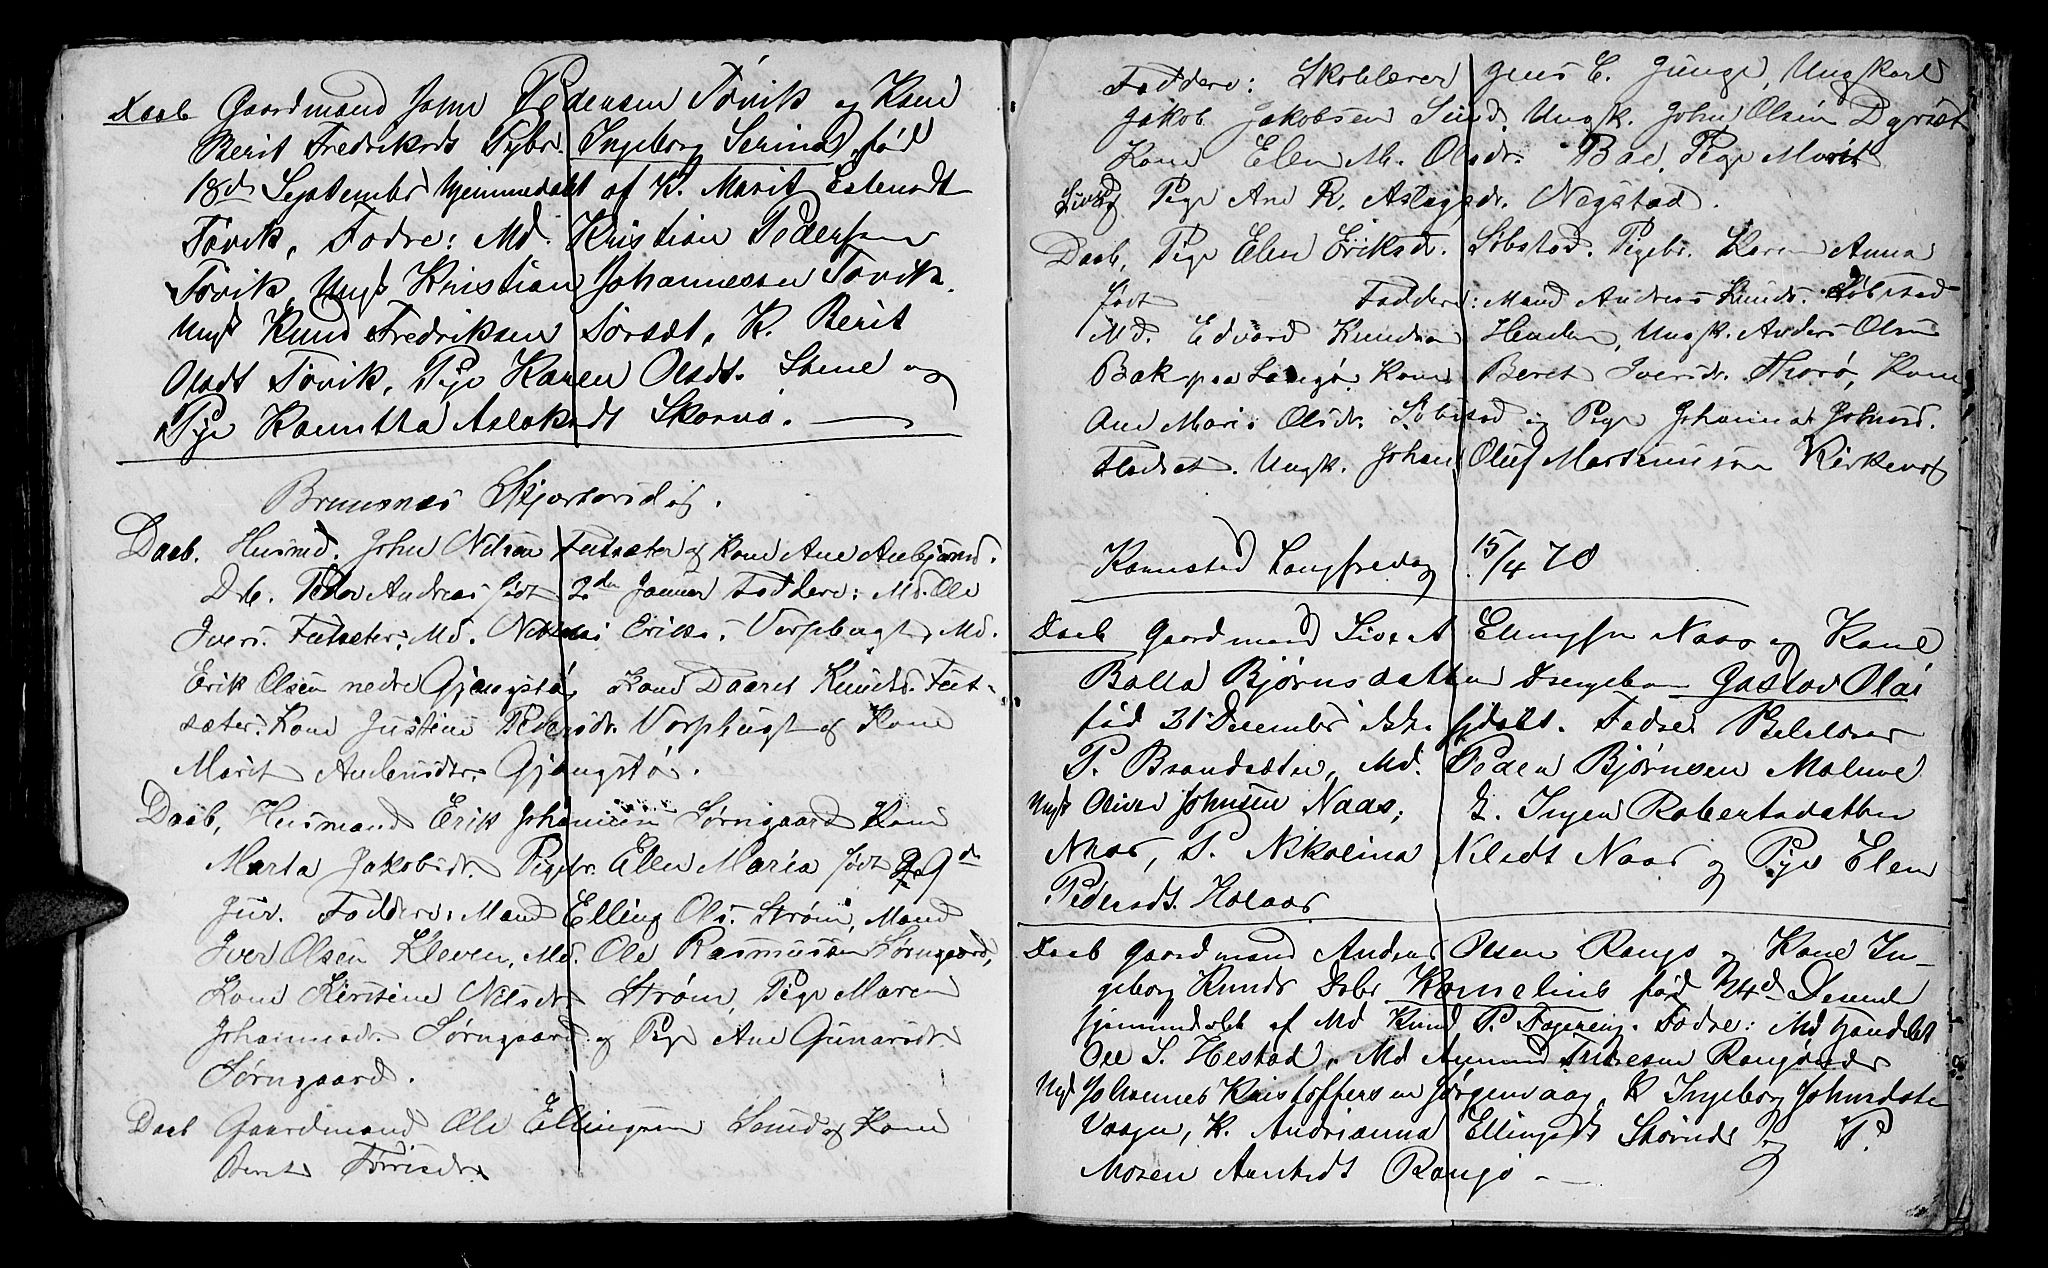 Daab Gaardmand John Pedersen Tøvik og Kone
Berit Fredriksdt Pgbr. Ingeborg Serina fød
18de September hjemmedøbt af K. Marit Estensdt
Tøvik, Fadre: Md. Kristian Pedersen
Tøvik, Ungk Kristian Johannesen Tøvik.
Ungk Knud Fredriksen Sørsæt, K. Berit
Olsdt Tøvik, Pige Karen Olsdt. Stene og
Pige Aslaksdt
Bremsnes Skjærtorsdag.
Daab. Husmd. John Nilsen og Kone Ane
Drb. Peder Andreas født 2den Januar Faddere: Md. Ole
Ivers. Md. Eriks. Vorpbugt, Md.
Erik Olsen nedre Gjengstø, Kone Daaret Knudtsd.
Kone Justine Pedersdr. Vorpbugt og Kone
Marit Gjengstø.
Daab, Husmand Erik Johannesen Sørngaard Kone
Marta Jakobsdr. Pigebr. Ellen Maria født 9de
Faddere: Mand Elling Ols. Strøm, Mand
Iver Olsen Kleven, Md. Ole Rasmussen Sørngaard,
Kone Kirstine Nilsdr Strøm, Pige Maren
Johannesdr. Sørngaard og Pige Ane Gunarsdr
Sørngaard.
Daab Gaardmand Ole Ellingsen Sund og Kone
Beret
Faddere: Skolelærer Jens C. Junge, Ungkarl
Jakob Jakobsen Sund, Ungk. John Olsen Dyrsæt
Kone Elen M. Olsdr. Bae, Pige Marit
Pige Ane R. Aslagsdr. Negstad.
Daab, Pige Elen Eriksd. Søbstad. Pigebr. Karen Anna
født Faddere: Mand Andreas Knuds. Søbstad
Md. Edvard Knudsen Henden, Ungk. Anders Olsen
Bak paa Langø, Kone Beret Iversdr. Thorø, Kone
Ane Maris Olsdr. Søbstad og Pige Johanna Johnsd.
Fladset. Ungk. Johan Oluf Martinussen Kirkevog
Kornstad Langfredag 15/4 70
Daab Gaardmand Sivert Ellingsen Naas og Kone
Bolla Bjørnsdatter Drengebarn Gustav Olai
fød 31 December ikke hjdøbt. Fadre
P. Brandsæter, Md. Peder Bjørnsen Malme
Ungk Oliver Johnsen Naas; Ingen Robertsdatter
P. Nikolina Nilsdt Naas og Pige Elen
Pedersdt. Holaas
Daab Gaardmand Anders Olsen Rangø og Kone In-
geborg Knuds Drbr Kornelius fød 24de
hjemmedøbt af Md Knud P. Fagereng. Fadre: Md
Ole S. Hestad, Md Rangøe
Ungk Johannes Kristoffersen Jørgenvaag, K Ingeborg Johnsdatt
Vaagen, K. Andrianna Ellingsdt og P.
Maren Rangø